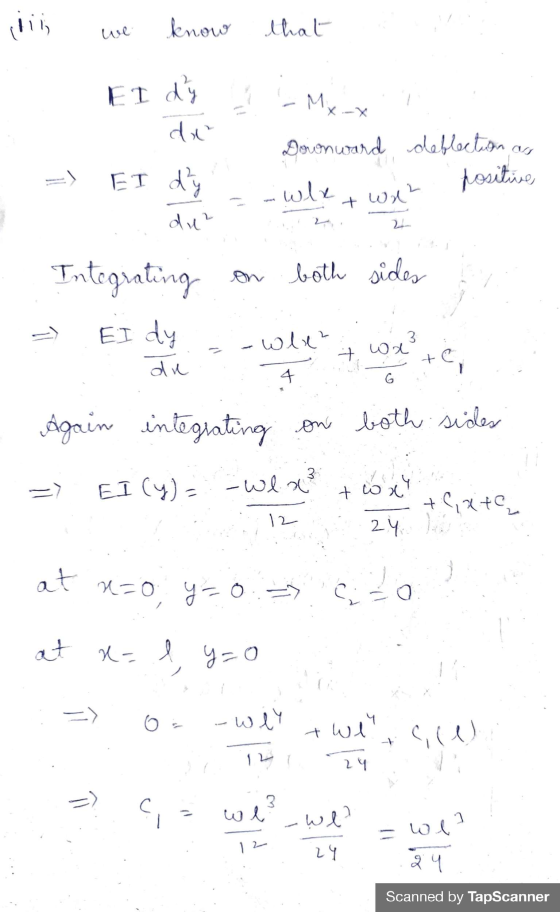 (iii) we know that
EI d²y/dx² = - M x-x
Downward deflection as positive
=> EI d²y/dx² = - wlx/2 + wx²/2
Integrating on both sides
=> EI dy/dx = - wlx²/4 + wx³/6 + C₁
Again integrating on both sides
=> EI (y) = - wlx³/12 + wx⁴/24 + C₁x + C₂
at x=0, y=0 => C₂ = 0
at x= l, y=0
=> 0 = - wl⁴/12 + wl⁴/24 + C₁(l)
=> C₁ = wl³/12 - wl³/24 = wl³/24
Scanned by TapScanner